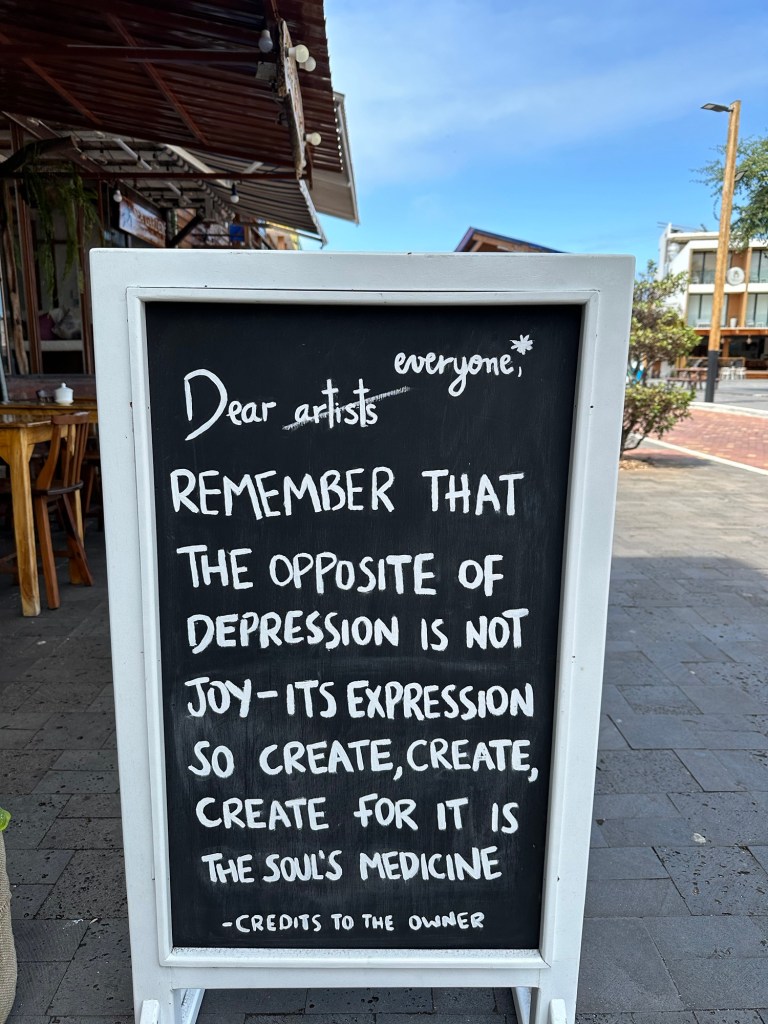 everyone,*
Dear artists
REMEMBER THAT
THE OPPOSITE OF
DEPRESSION IS NOT
JOY-ITS EXPRESSION
SO CREATE, CREATE,
CREATE FOR IT IS
THE SOUL'S MEDICINE
-CREDITS TO THE OWNER